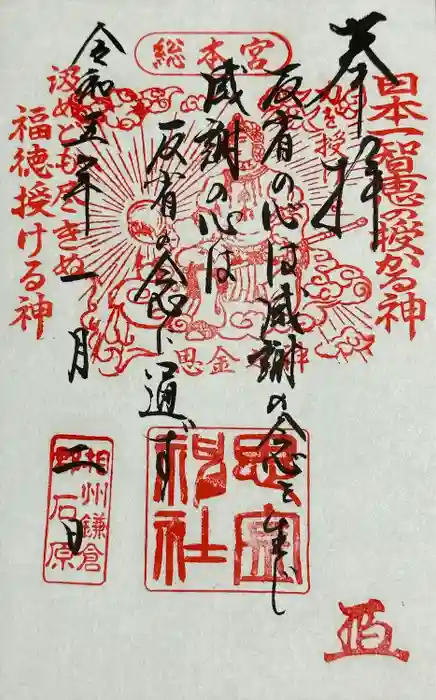 総本宮
奉拝
日本一智恵の授かる神
反省の心は感謝の念を生じ
感謝の心は
反省の念に通ず
令和五年一月
日
汲めども尽きぬ
福徳授ける神
思金
神
思金
神社
相州鎌倉
石原